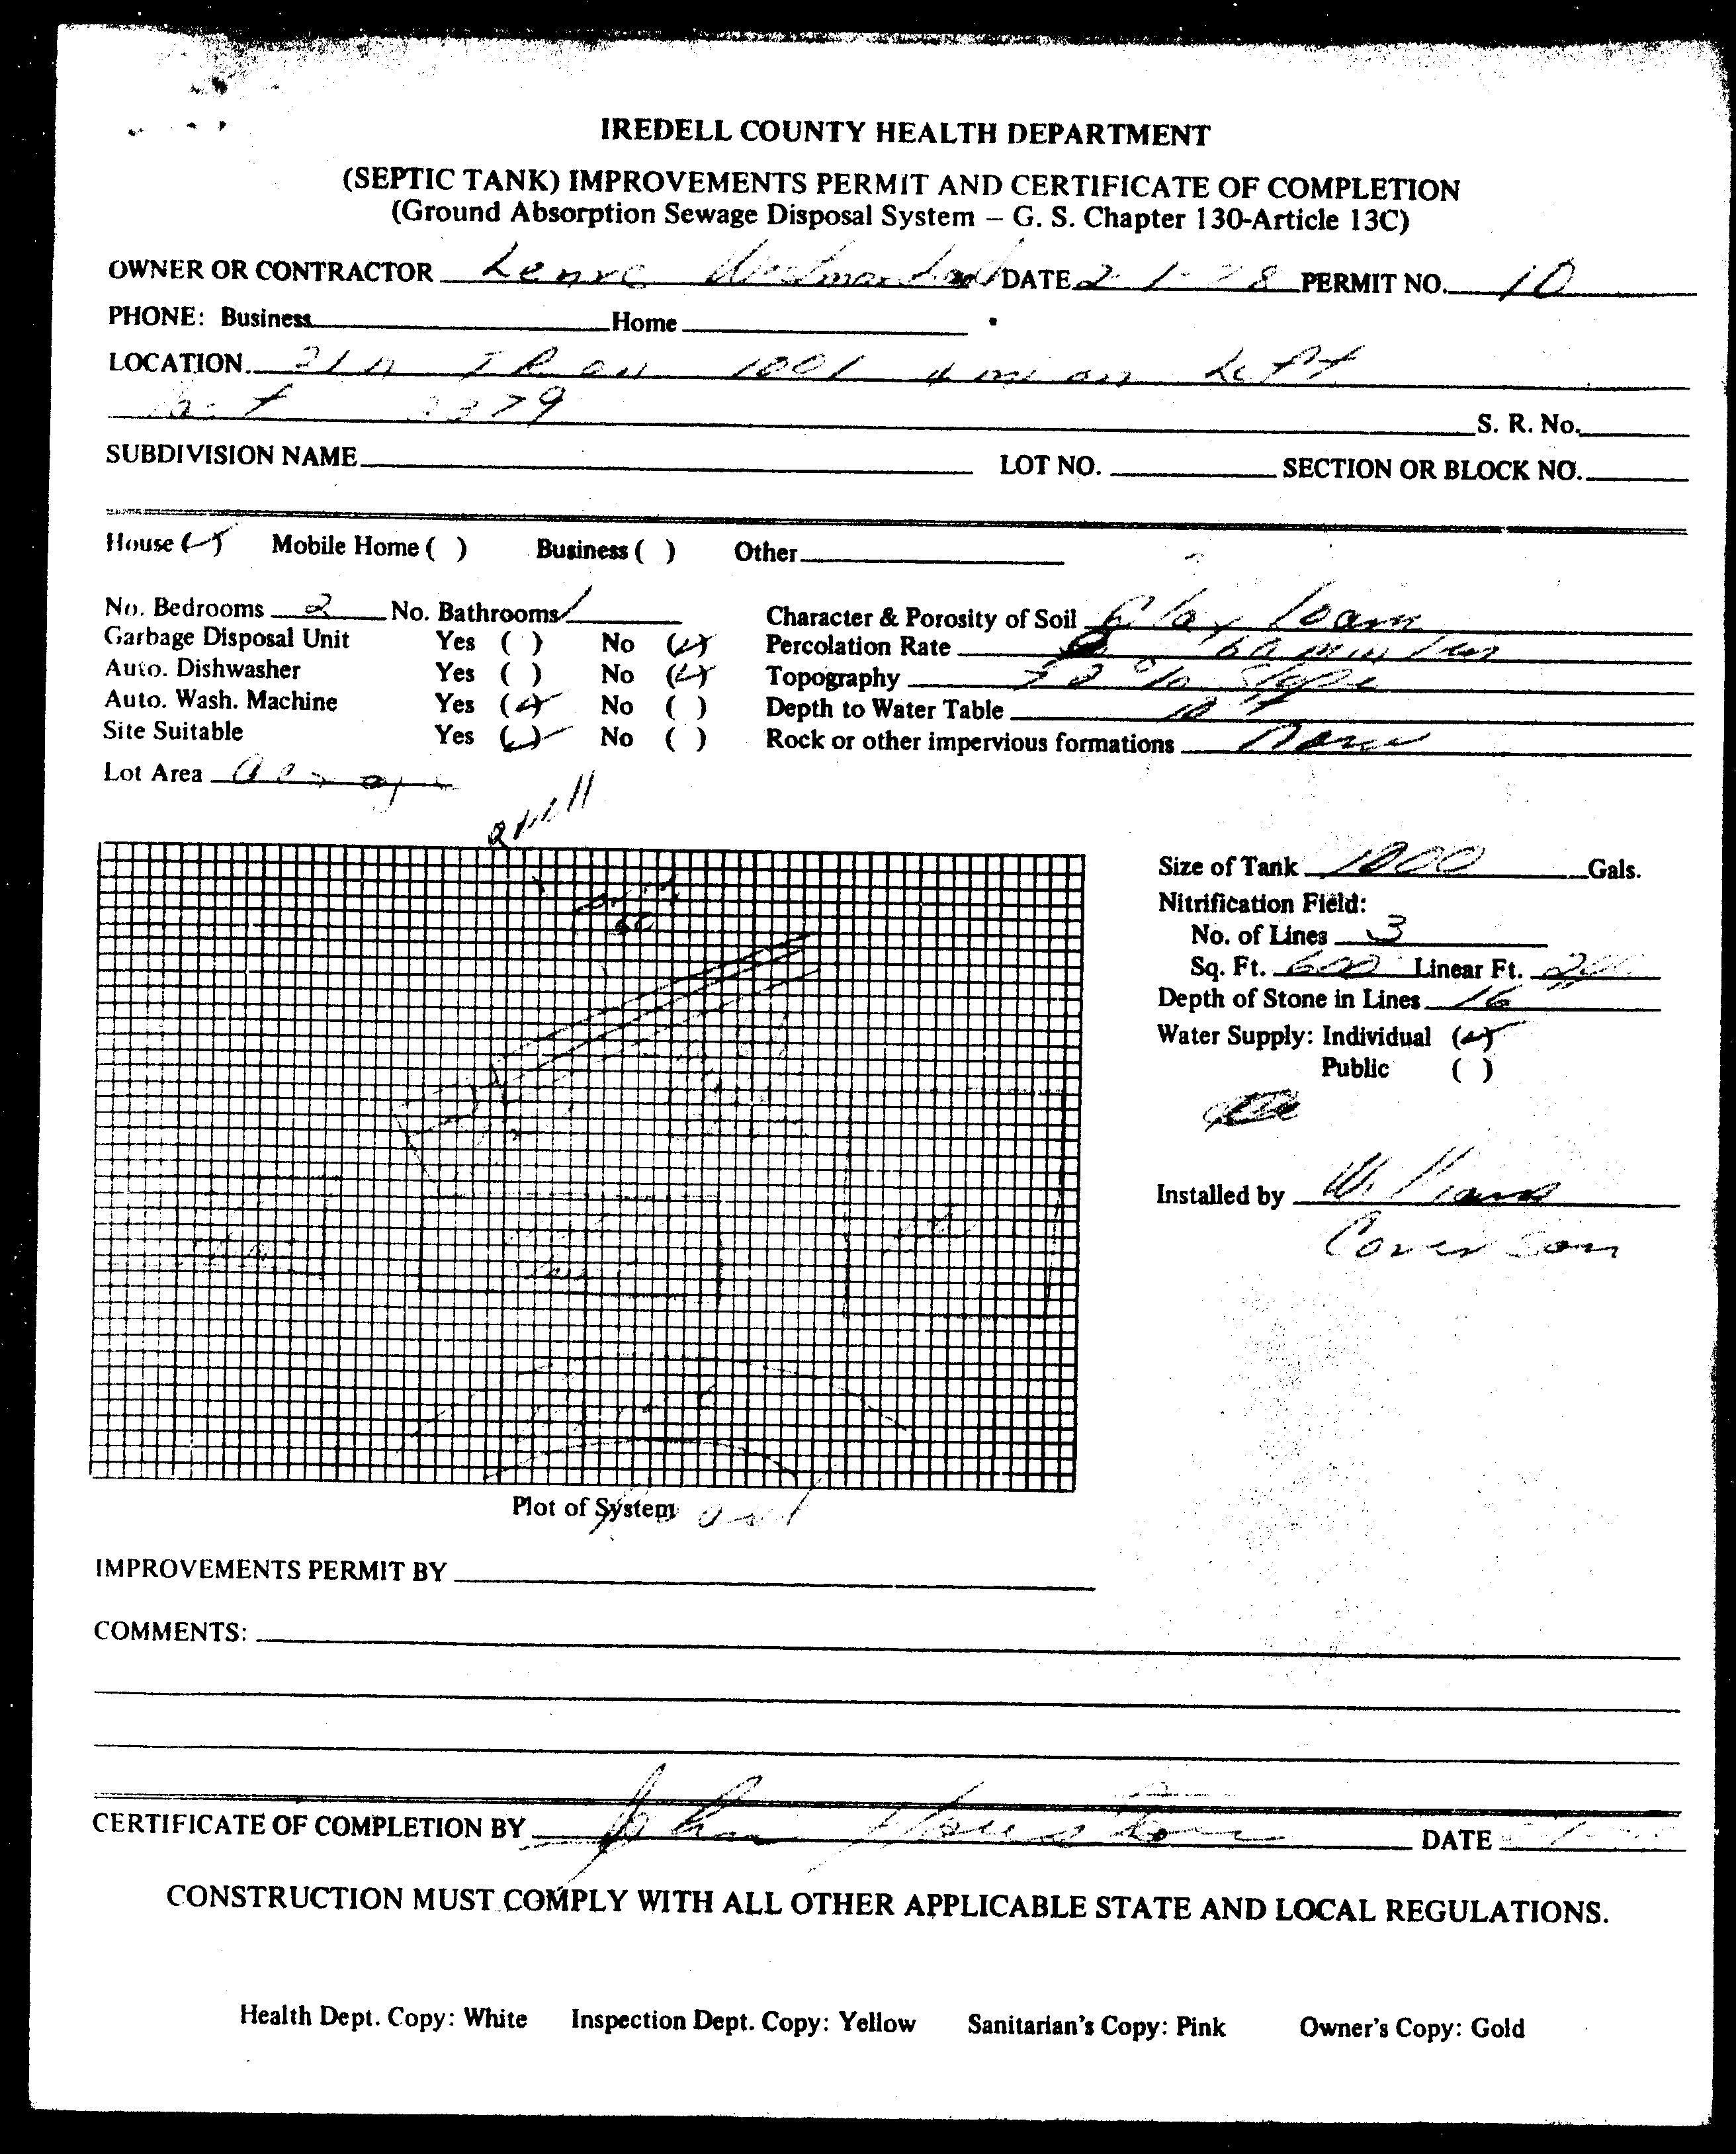 IREDELL COUNTY HEALTH DEPARTMENT
(SEPTIC TANK) IMPROVEMENTS PERMIT AND CERTIFICATE OF COMPLETION
(Ground Absorption Sewage Disposal System – G. S. Chapter 130-Article 13C)
OWNER OR CONTRACTOR DATE 2-1-78 PERMIT NO. 10
PHONE: Business Home
LOCATION 21 N 1001 on Left
2379 S. R. No.
SUBDIVISION NAME LOT NO. SECTION OR BLOCK NO.
House (✓) Mobile Home ( ) Business ( ) Other
No. Bedrooms 2 No. Bathrooms 1 Character & Porosity of Soil Clay loam
Garbage Disposal Unit Yes ( ) No (✓) Percolation Rate 60 min
Auto. Dishwasher Yes ( ) No (✓) Topography % Slope
Auto. Wash. Machine Yes (✓) No ( ) Depth to Water Table 10 ft
Site Suitable Yes (✓) No ( ) Rock or other impervious formations None
Lot Area
well
60
Size of Tank 1000 Gals.
Nitrification Field:
No. of Lines 3
Sq. Ft. 600 Linear Ft.
Depth of Stone in Lines 16"
Water Supply: Individual (✓)
Public ( )
Installed by Williams
Coverson
Plot of System
Road
IMPROVEMENTS PERMIT BY
COMMENTS:
CERTIFICATE OF COMPLETION BY John Houston DATE
CONSTRUCTION MUST COMPLY WITH ALL OTHER APPLICABLE STATE AND LOCAL REGULATIONS.
Health Dept. Copy: White Inspection Dept. Copy: Yellow Sanitarian's Copy: Pink Owner's Copy: Gold